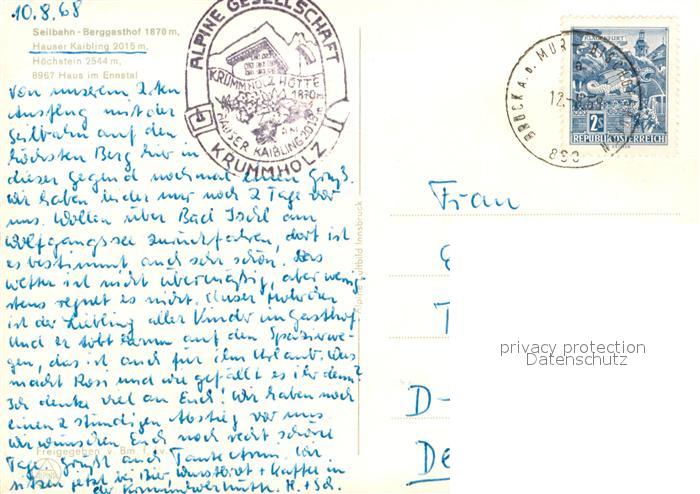 10.8.68
Seilbahn - Berggasthof 1870 m,
Hauser Kaibling 2015 m,
Höchstein 2544 m,
8967 Haus im Ennstal
Von unserem 2ten
Ausflug mit der
Seilbahn auf den
höchsten Berg hier in
dieser Gegend nochmal einen Gruß.
Wir haben leider nur noch 2 Tage vor
uns. Wollen über Bad Ischl am
Wolfgangsee zurückfahren, dort ist
es bestimmt auch sehr schön. Das
Wetter ist nicht übermäßig, aber wenig-
stens regnet es nicht. Unser
ist der Liebling aller Kinder im Gasthof.
Und er tobt herum auf den Spazierwe-
gen, das ist auch für ihn Urlaub. Was
macht Rosi und wie gefällt es ihr denn?
Ich denke viel an Euch! Wir haben noch
einen 2 stündigen Abstieg vor uns.
Wir wünschen Euch noch recht schöne
Freigegeben v. Bm. f.
Tage. Grüßt auch Tante
sitzen jetzt bei Bier, Wurstbrot + Kaffee in
der Krummholzhütte. H. + Sch.
ALPINE GESELLSCHAFT
KRUMMHOLZHÜTTE
1870 m
AM
HAUSER KAIBLING 2015 m
KRUMMHOLZ
Alpine Luftbild Innsbruck
KLAGENFURT
2 S
REPUBLIK ÖSTERREICH
BRUCK A. D. MUR
12.
Frau
D-
privacy protection
Datenschutz